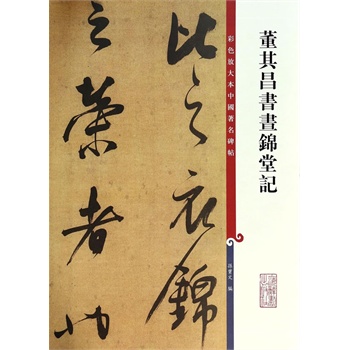 董其昌書晝錦堂記
彩色放大本中國著名碑帖
孫寶文 編
比之衣錦
之榮者也